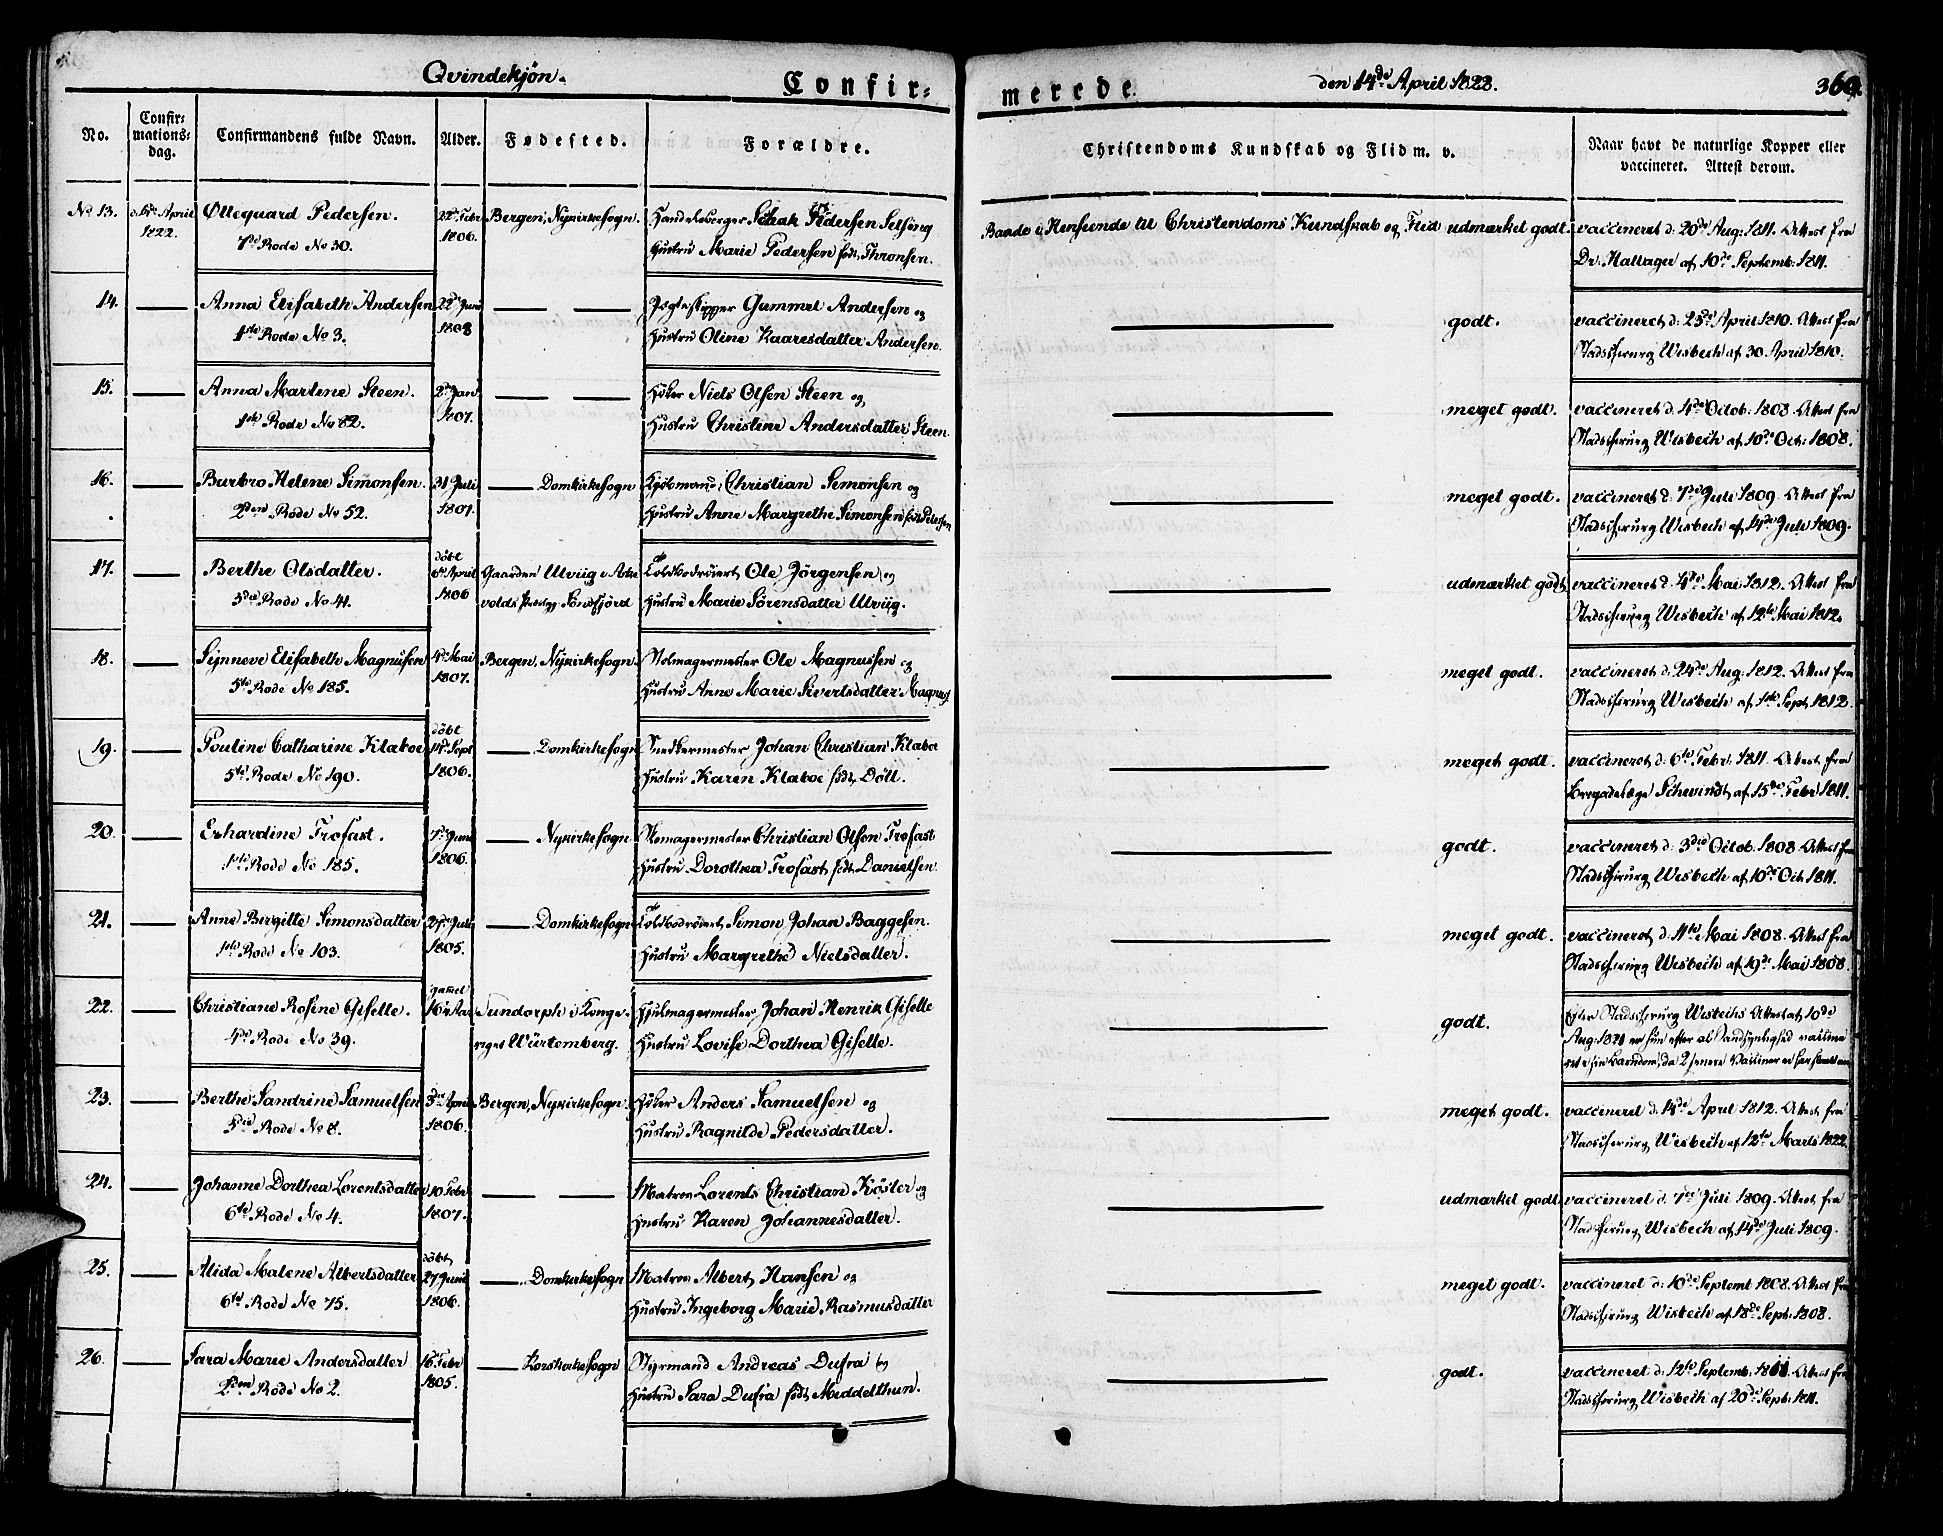 Qvindekjøn.
Confir=
merede
den 14de April 1822.
No.
Confir=
mations=
dag.
Confirmandens fulde Navn.
Alder.
Fødested.
Forældre.
Christendoms Kundskab og Flid m. v.
Naar havt de naturlige Kopper eller
vaccineret. Attest derom.
No 13.
April
1822.
Øllegaard Pedersen.
7de Rode No 30.
22de Febr
1806.
Bergen, Nykirkesogn.
Pedersen Selsing
Hustru Marie Pedersen født Thronsen.
Baade i Henseende til Christendoms Kundskab og Flid udmærket godt.
vaccineret d: 20de Aug: 1811. Attest fra
Dr: Hallager af 10de Septemb: 1811.
14.
Anna Elisabeth Andersen
1ste Rode No 3.
22de Juni
1808
Jægteskipper Gummel Andersen og
Hustru Oline Kaaresdatter Andersen.
godt.
vaccineret d: 23de April 1810. Attest fra
Stadschirurg Wisbech af 30 April 1810.
15.
Anna Marlene Steen.
1ste Rode No 82.
2de Jan
1807.
Høker Niels Olsen Steen og
Hustru Christine Andersdatter Steen.
meget godt.
vaccineret d: 4de Octob: 1808. Attest fra
Stadschirurg Wisbech af 10de Oct: 1808.
16.
Barbro Helene Simonsen.
2den Rode No 52.
31 Juli
1807.
Domkirkesogn
Kjøbmand Christian Simonsen og
Hustru Anne Margrethe Simonsen født Petersen
meget godt.
vaccineret d: 7de Juli 1809. Attest fra
Stadschirurg Wisbech af 14de Juli 1809.
17.
Berthe Olsdatter.
3die Rode No 41.
døbt
6te April
1806
Gaarden Ulviig i Aske
volds Præstegj: Søndfjord
Toldbodroiert Ole Jörgensen og
Hustru Marie Sörensdatter Ulviig.
udmærket godt
vaccineret d: 4de Mai 1812. Attest fra
Stadschirurg Wisbech af 12te Mai 1812.
18.
Synneve Elisabeth Magnusen
5te Rode No 185.
4de Mai
1807.
Bergen, Nykirkesogn
Stolmagermester Ole Magnussen og
Hustru Anne Marie Sivertsdatter Magnus:
meget godt.
vaccineret d: 24de Aug: 1812. Attest fra
Stadschirurg Wisbech af 1ste Sept 1812.
19.
Pouline Catharine Klaboe
5te Rode No 190.
døbt
14de Sept
1806.
Domkirkesogn
Snedkermester Johan Christian Klaboe
Hustru Karen Klaboe født Döll.
meget godt.
vaccineret d: 6te Febr: 1811. Attest fra
Brigadelæge Schwindt af 15de Febr 1811.
20.
Erhardine Trofast.
1ste Rode No 185.
7de Juni
1806.
Nykirkesogn
Christian Olsen Trofast
Hustru Dorothea Trofast født Danielsen.
godt.
vaccineret d: 3die Octob. 1808 Attest fra
Stadschirurg Wisbech af 10de Oct. 1811.
21.
Anne Birgitte Simonsdatter
1ste Rode No 103.
27de Juli
1805.
Domkirkesogn
Toldbodroiert Simon Johan Baggesen.
Hustru Margrethe Nielsdatter.
meget godt.
vaccineret d: 11te Mai 1808. Attest fra
Stadschirurg Wisbech af 19de Mai 1808.
22.
Christiane Rosine Giselle.
4de Rode No 39.
gamel
16 Aar
Sundorph i Konge-
riget Würtemberg.
Hjulmagermester Johan Henrik Giselle
Hustru Lovise Dorthea Giselle.
godt.
Efter Stadschirurg Wisbechs Attest af 10de
Aug: 1821 er hun efter al Sandsynlighed vaccine
ret i sin Barndom, da 2 senere Vacciner
23.
Berthe Sandrine Samuelsen
5te Rode No 8.
3die April
1806.
Bergen, Nykirkesogn.
Høker Anders Samuelsen og
Hustru Ragnilde Pedersdatter.
meget godt.
vaccineret d: 14de April 1812. Attest fra
Stadschirurg Wisbech af 12te Marts 1822.
24.
Johanne Dorthea Lorentsdatter
6te Rode No 4.
10 Febr
1807.
Matros Lorents Christian Köster og
Hustru Karen Johannesdatter.
udmærket godt
vaccineret d. 7de Juli 1809. Attest fra
Stadschirurg Wisbech af 14de Juli 1809.
25.
Alida Malene Albertsdatter
6te Rode No 75.
døbt
27 Juni
1806.
Domkirkesogn
Matros Albert Hansen og
Hustru Ingeborg Marie Rasmusdatter
meget godt.
vaccineret d: 10de Septemt 1808. Attest fra
Stadschirurg Wisbech af 18de Sept: 1808.
26.
Sara Marie Andersdatter
2den Rode No 2.
16de Febr
1805.
Korskirkesogn
Styrmand Andreas Dufra og
Hustru Sara Dufra født Middelthun.
godt.
vaccineret d: 12te Septemb: 1811. Attest fra
Stadschirurg Wisbech af 20de Sept: 1811.